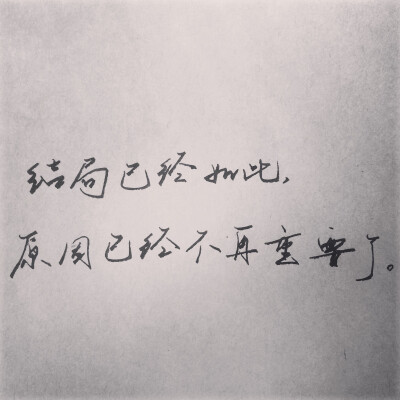 结局已经如此,
原因已经不再重要了。